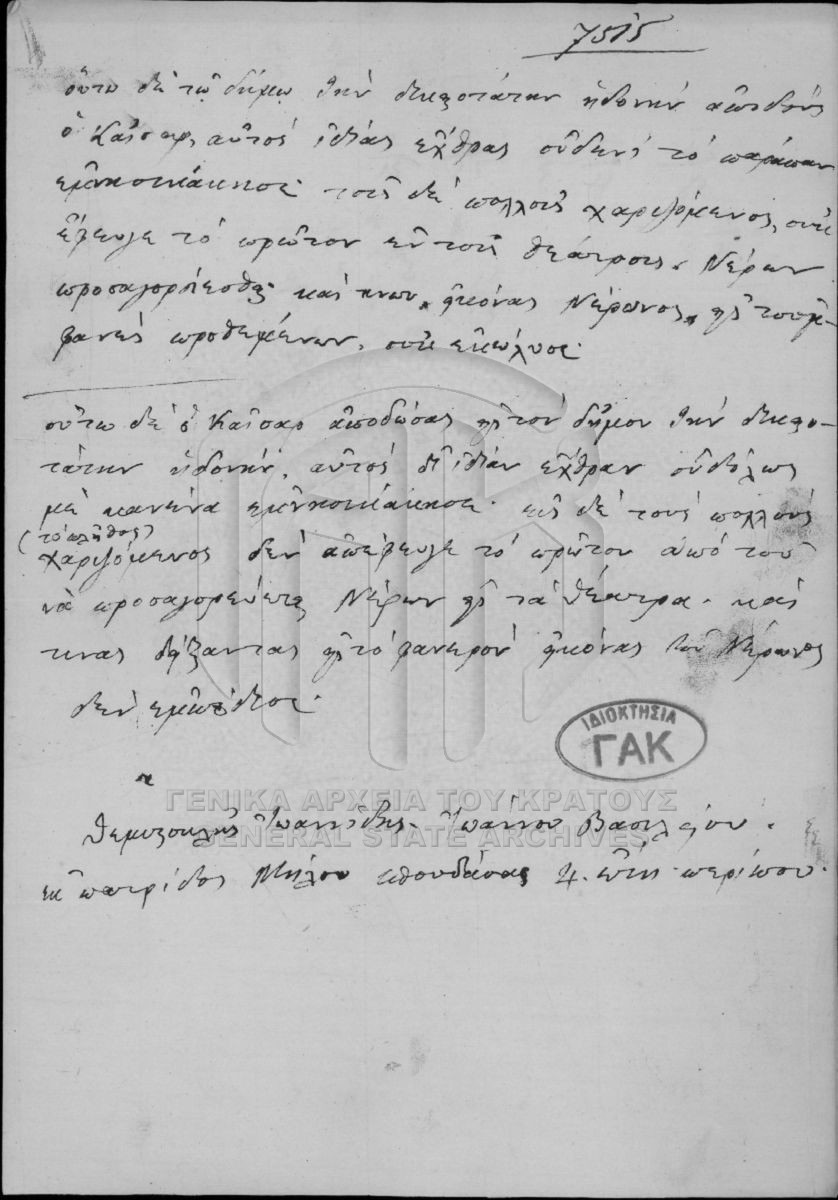 7515
οὕτω δὲ τῷ δήμῳ τὴν δικαιοτάτην ἡδονὴν ἀποδοὺς
ὁ Καῖσαρ, αὐτὸς ἰδίας ἔχθρας οὐδενὶ τὸ παράπαν
ἐμνησικάκησε· τοῖς δὲ πολλοῖς χαριζόμενος, οὐκ
ἔφευγε τὸ πρῶτον ἐν τοῖς θεάτροις Νέρων
προσαγορεύεσθαι καὶ τινων εἰκόνας Νέρωνος εἰς τοὐμ-
φανὲς προθεμένων, οὐκ ἐκώλυσε·
οὕτω δὲ ὁ Καῖσαρ ἀποδώσας εἰς τὸν δῆμον τὴν δικαιο-
τάτην ἡδονήν, αὐτὸς δι' ἰδίαν ἔχθραν οὐδόλως
μὲ κανένα ἐμνησικάκησε· εἰς δὲ τοὺς πολλοὺς
(τὸ πλῆθος)
χαριζόμενος δὲν ἀπέφευγε τὸ πρῶτον ἀπὸ τοῦ
νὰ προσαγορεύεται Νέρων εἰς τὰ θέατρα· καὶ
τινας δείξαντας εἰς τὸ φανερὸν εἰκόνας τοῦ Νέρωνος
δὲν ἐμπόδισε·
ΙΔΙΟΚΤΗΣΙΑ
ΓΑΚ
ΓΕΝΙΚΑ ΑΡΧΕΙΑ ΤΟΥ ΚΡΑΤΟΥΣ
GENERAL STATE ARCHIVES
Θεμιστοκλῆς Ἰωαννίδης Ἰωάννου Βασιλείου.
ἐκ πατρίδος Μήλου σπουδάσας 4. ἔτη περίπου.